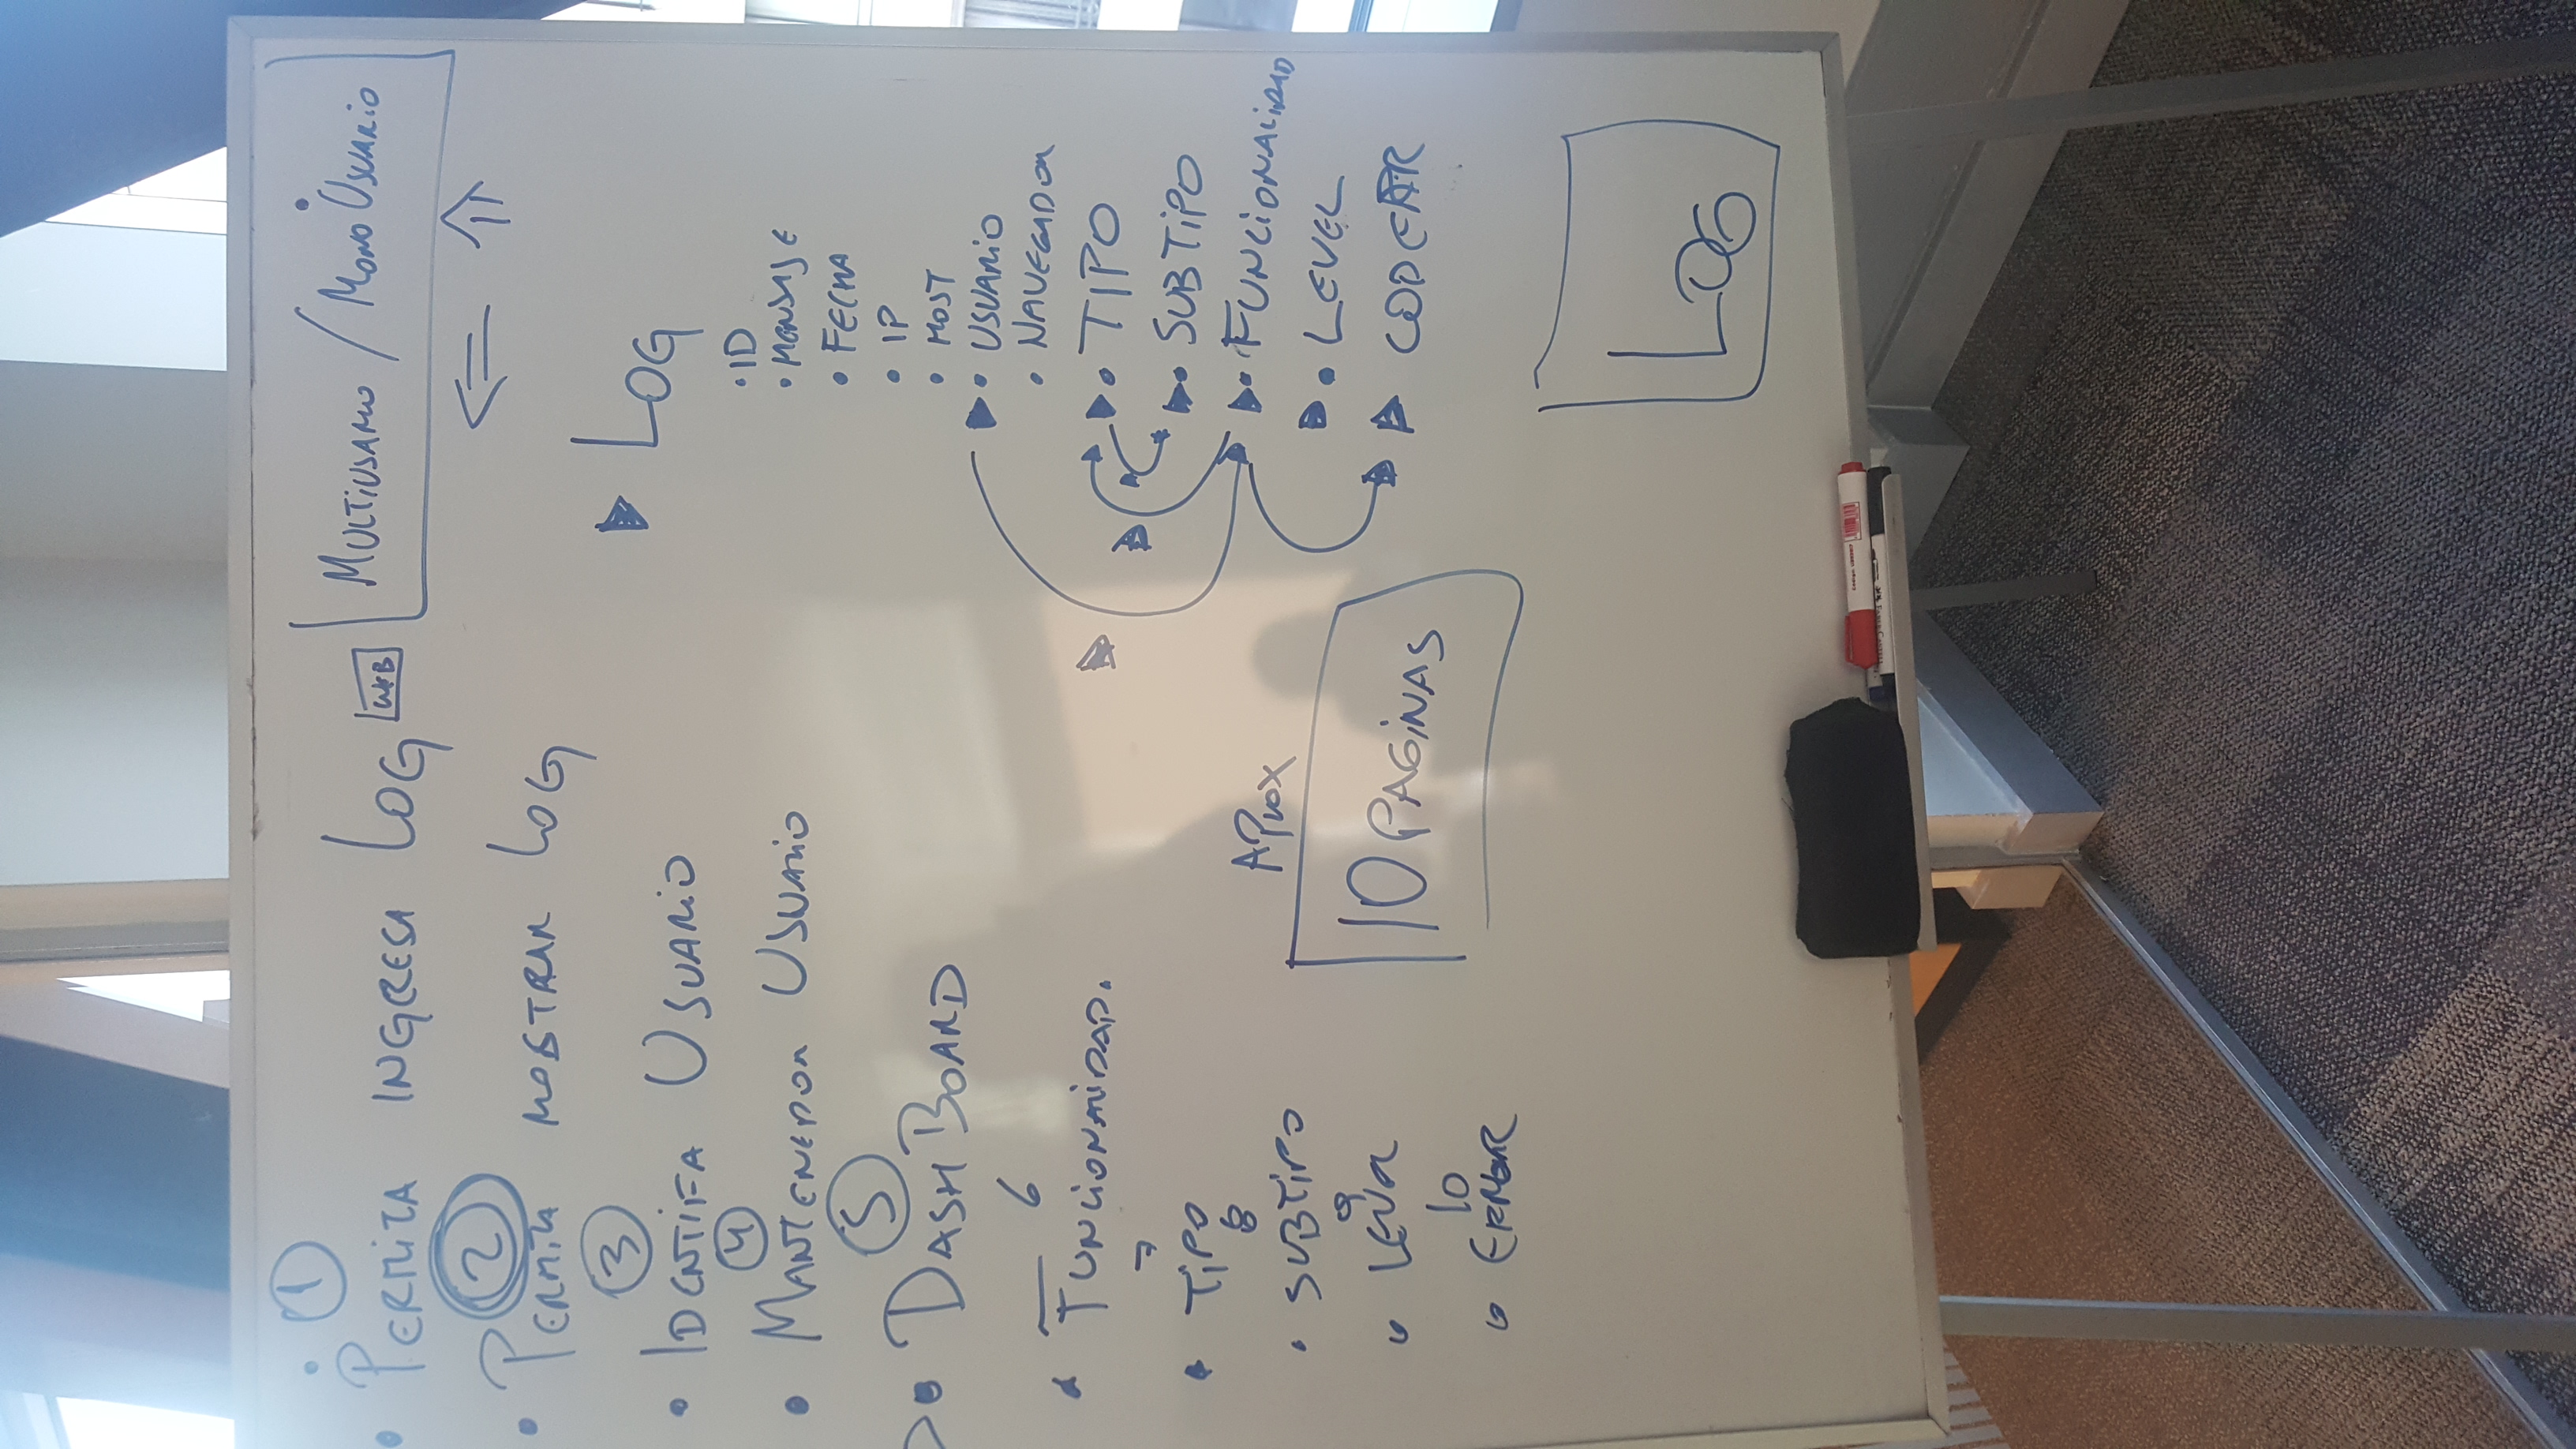 1
• PERMITA INGRESA LOG WEB
2
• PERMITA MOSTRAR LOG
3
• IDENTIFA USUARIO
4
• MANTENEDOR USUARIO
5
• DASHBOARD
6
• FUNCIONALIDAD.
7
• TIPO
8
• SUBTIPO
9
• LEVEL
10
• ERROR
APROX
10 PAGINAS
MULTIUSARIO / MONO USUARIO
LOG
• ID
• MENSAJE
• FECHA
• IP
• HOST
• USUARIO
• NAVEGADOR
• TIPO
• SUBTIPO
• FUNCIONALIDAD
• LEVEL
LOG